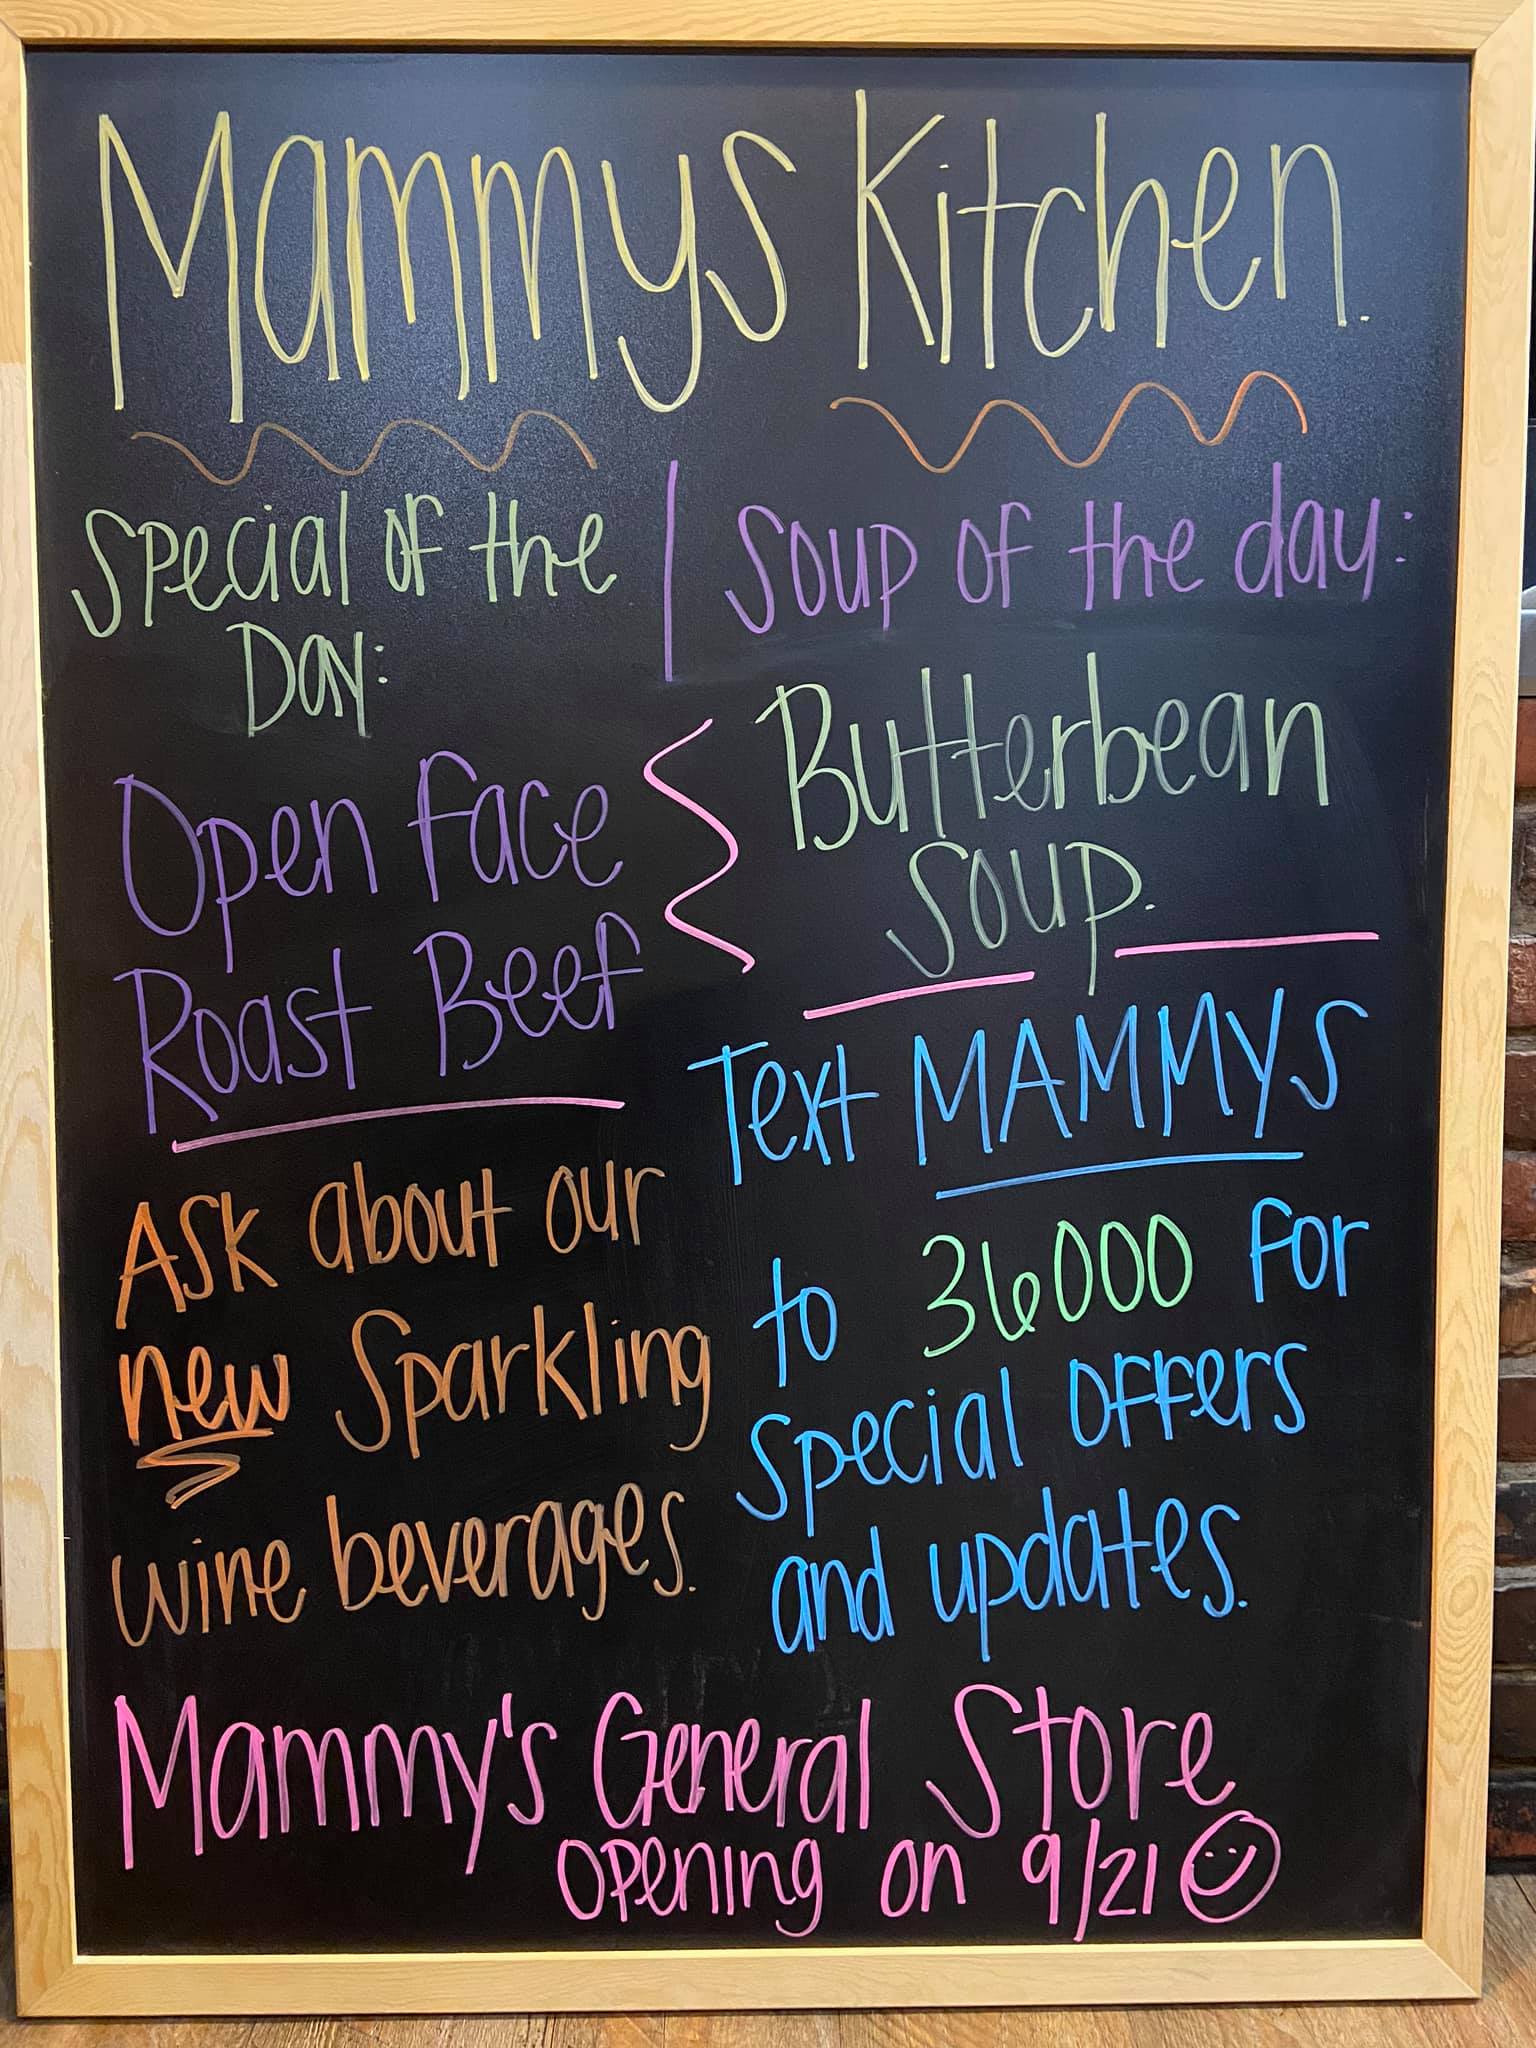 Mammys Kitchen.
Special of the
Day:
Open Face
Roast Beef
Soup of the day:
Butterbean
Soup.
Ask about our
new Sparkling
wine beverages.
Text MAMMYS
to 36000 for
special offers
and updates.
Mammy's General Store
opening on 9/21